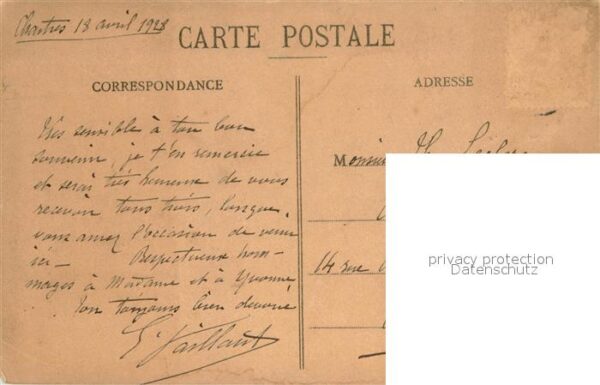 Chartres 18 avril 1928
CARTE POSTALE
CORRESPONDANCE
ADRESSE
Très sensible à ton bon
souvenir, je t'en remercie
et serai très heureux de vous
recevoir tous trois, lorsque
vous aurez l'occasion de venir
ici — Respectueux hom-
mages à Madame et à Yvonne
Ton toujours bien dévoué
G. Vaillant
Monsieur
14 rue
privacy protection
Datenschutz